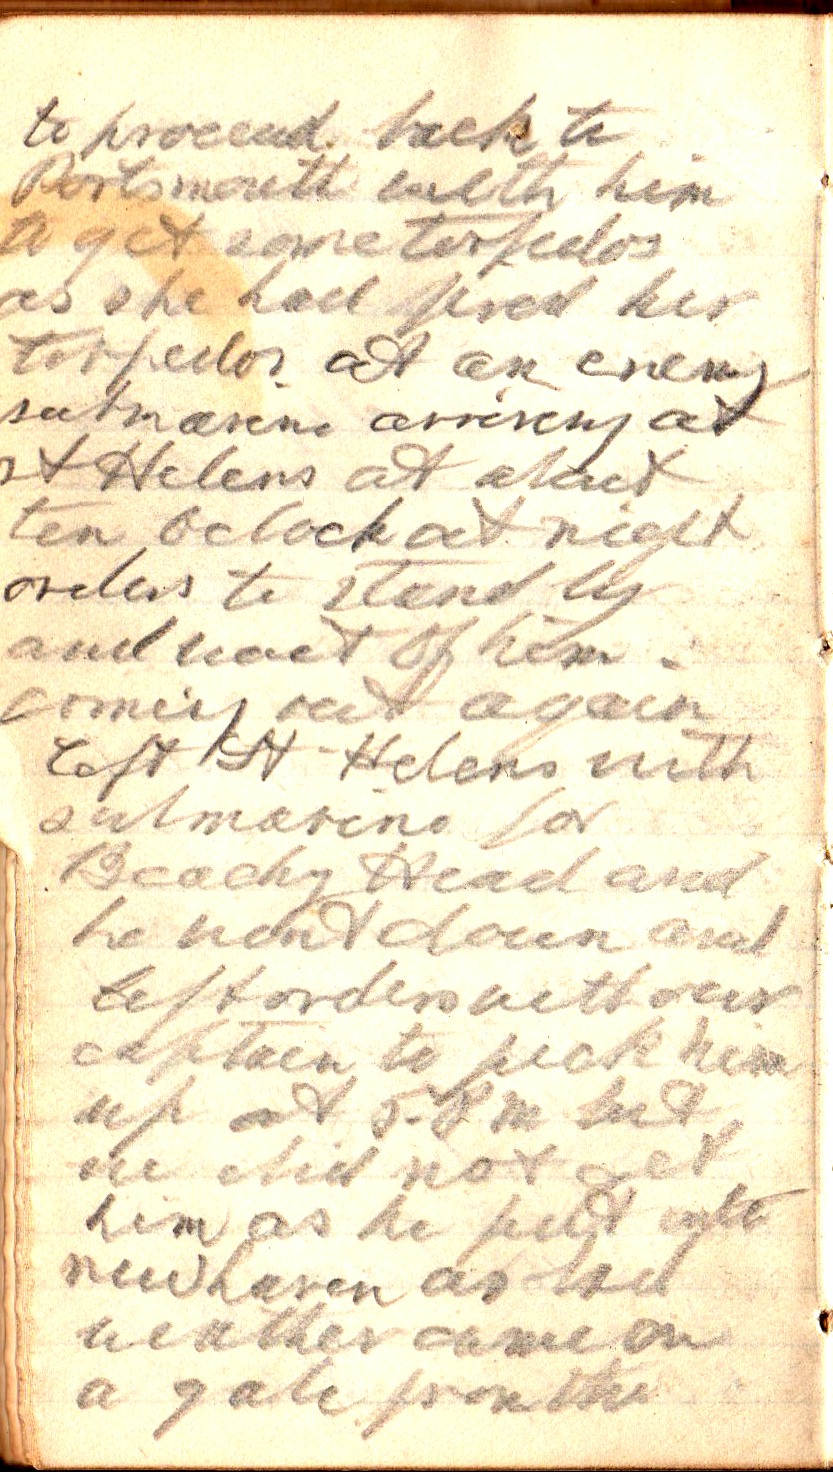 to proceed back to
Portsmouth with him
to get some torpedos
as she had fired her
torpedos at an enemy
submarine arriving at
St Helens at about
ten Oclock at night
orders to stand by
and wait of him
coming out again
Left St Helens with
submarine for
Beachy Head and
he went down and
left orders with our
captain to pick him
up at 5-PM but
we did not get
him as he put into
newhaven as bad
weather came on
a gale from the